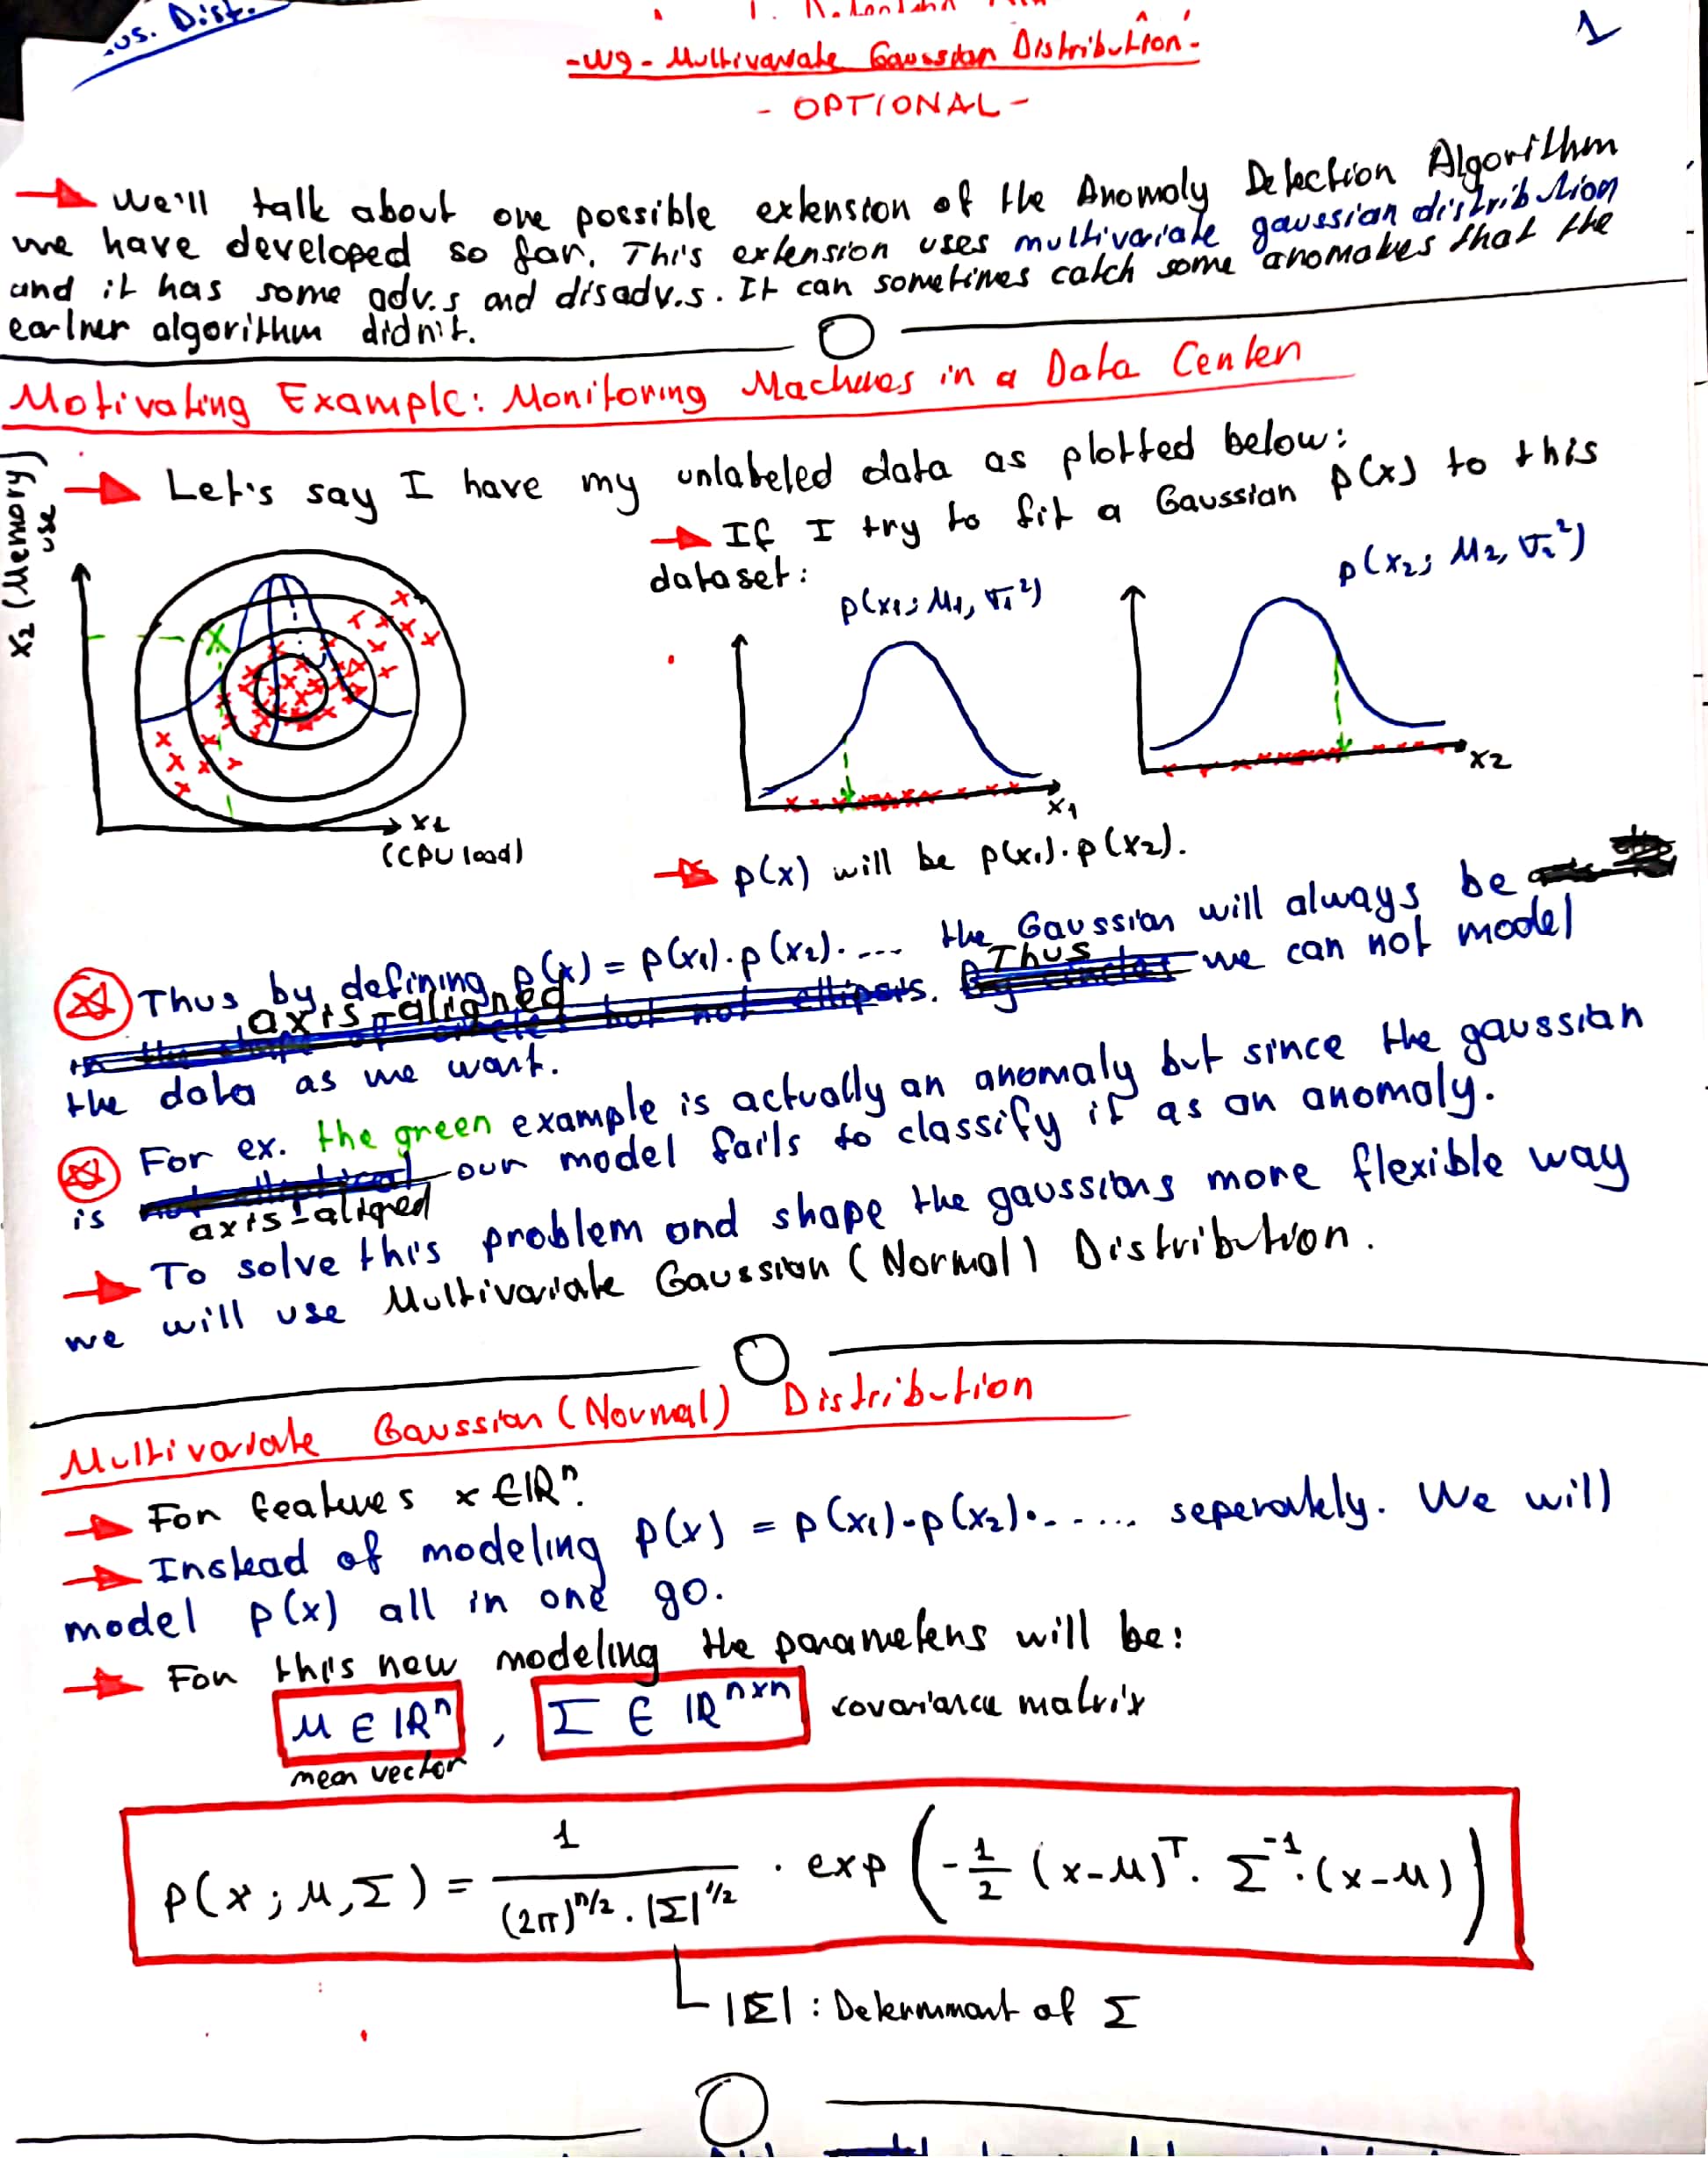 .us. Dist.
1
- W9 - Multivariate Gaussian Distribution -
- OPTIONAL -
We'll talk about one possible extension of the Anomoly Detection Algorithm
we have developed so far. This extension uses multivariate gaussian distribution
and it has some adv.s and disadv.s. It can sometimes catch some anomalies that the
earlier algorithm didn't.
Motivating Example: Monitoring Machines in a Data Center
Let's say I have my unlabeled data as plotted below:
If I try to fit a Gaussian p(x) to this
dataset:
x2 (Memory use)
x1
(CPU load)
p(x1; μ1, σ1²)
x1
p(x2; μ2, σ2²)
x2
p(x) will be p(x1).p(x2).
Thus by defining p(x) = p(x1).p(x2).... the Gaussian will always be
axis-aligned. Thus we can not model
the data as we want.
For ex. the green example is actually an anomaly but since the gaussian
is axis-aligned our model fails to classify it as an anomaly.
To solve this problem and shape the gaussians more flexible way
we will use Multivariate Gaussian (Normal) Distribution.
Multivariate Gaussian (Normal) Distribution
For features x ∈ ℝⁿ.
Instead of modeling p(x) = p(x1).p(x2)....... seperately. We will
model p(x) all in one go.
For this new modeling the parameters will be:
μ ∈ ℝⁿ , Σ ∈ ℝⁿˣⁿ covariance matrix
mean vector
p(x; μ, Σ) = 1 / ((2π)^(n/2) . |Σ|^(1/2)) . exp(-1/2 (x-μ)ᵀ . Σ⁻¹ . (x-μ))
|Σ| : Determinant of Σ